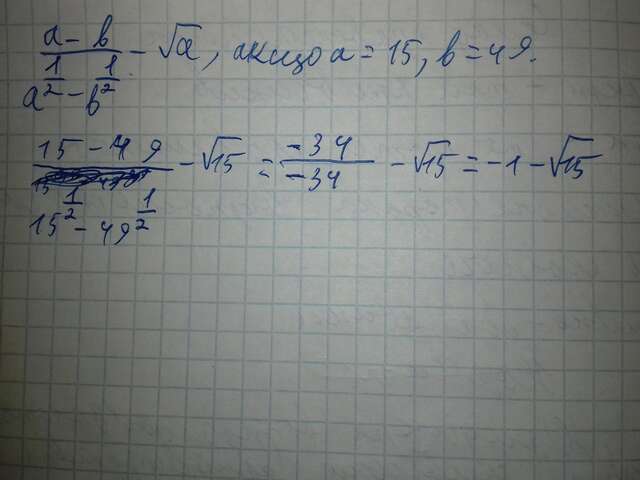 \frac{a - b}{a^{\frac{1}{2}} - b^{\frac{1}{2}}} - \sqrt{a}, якщо a = 15, b = 49.
\frac{15 - 49}{15^{\frac{1}{2}} - 49^{\frac{1}{2}}} - \sqrt{15} = \frac{-34}{-34} - \sqrt{15} = -1 - \sqrt{15}